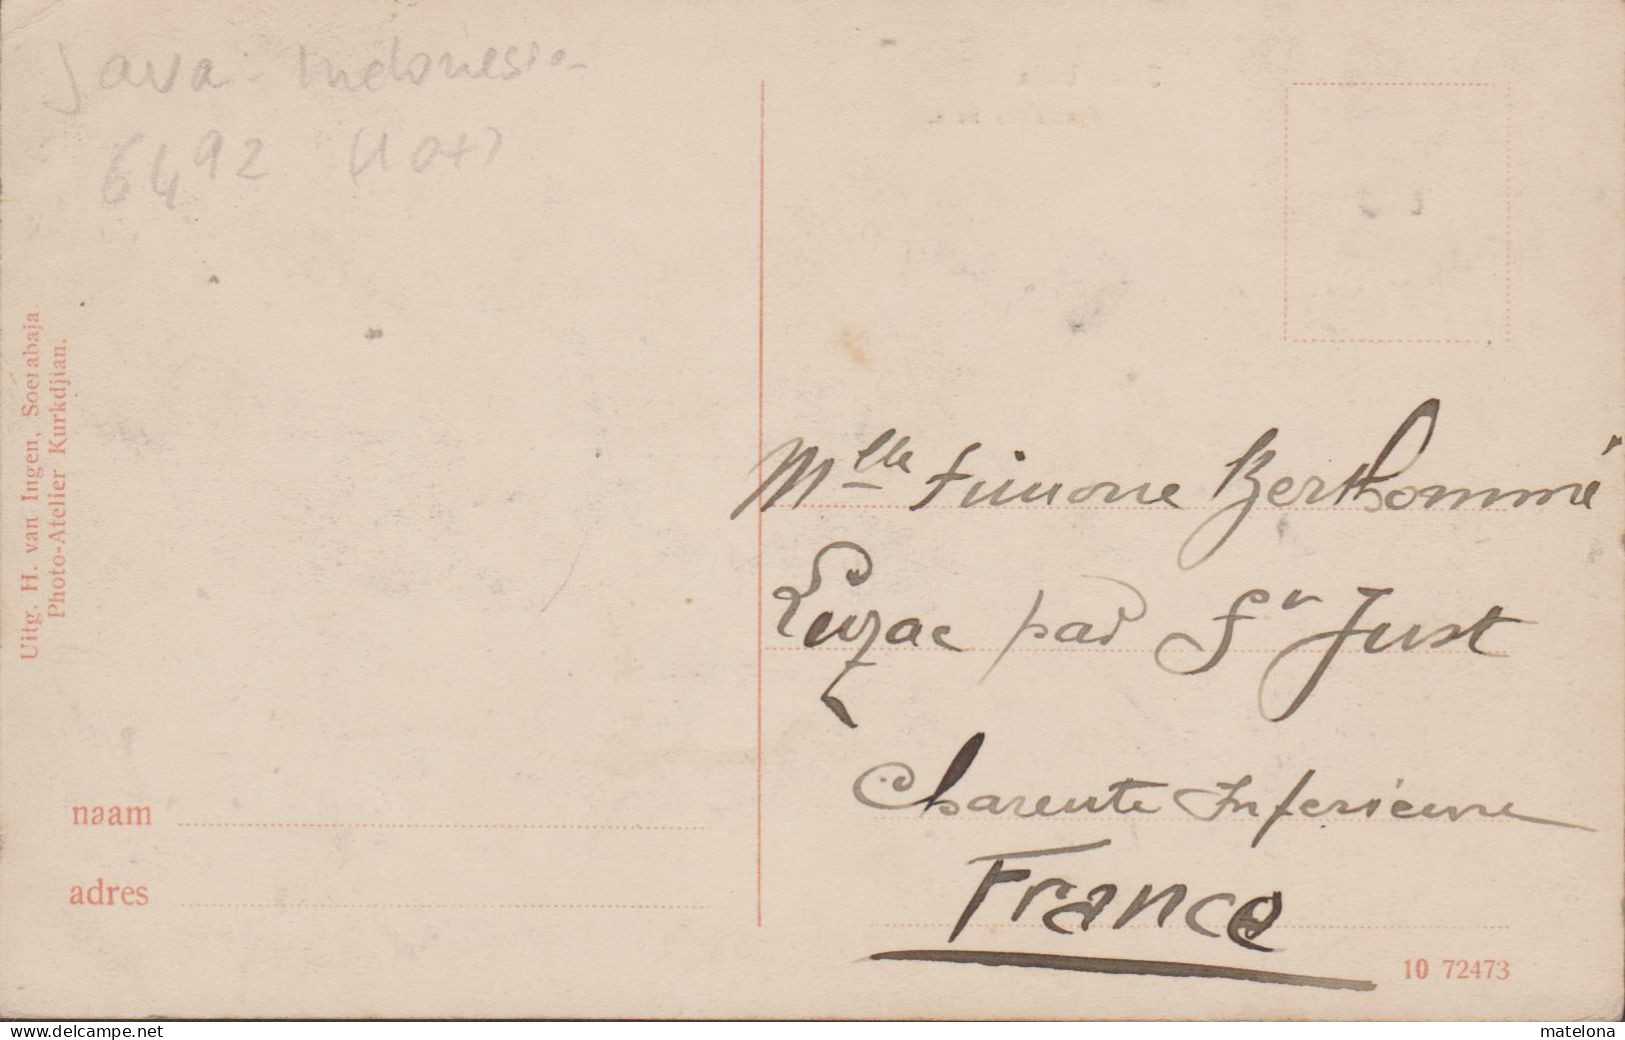 Java - Indonesie
6492 (Lot)
Uitg. H. van Ingen, Soerabaja
Photo-Atelier Kurkdjian.
Mlle Simone Berthommé
Luzac par St Just
Charente Inférieure
France
naam
adres
10 72473
delcampe.net
matelona